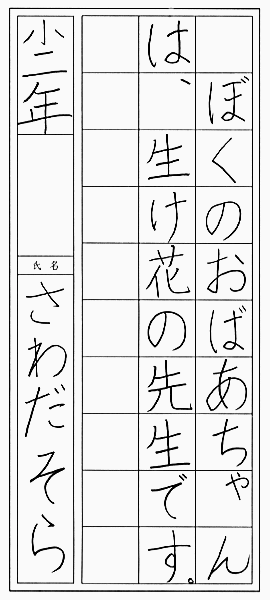 ぼくのおばあちゃん
は、生け花の先生です。
小二年
氏名
さわだそら